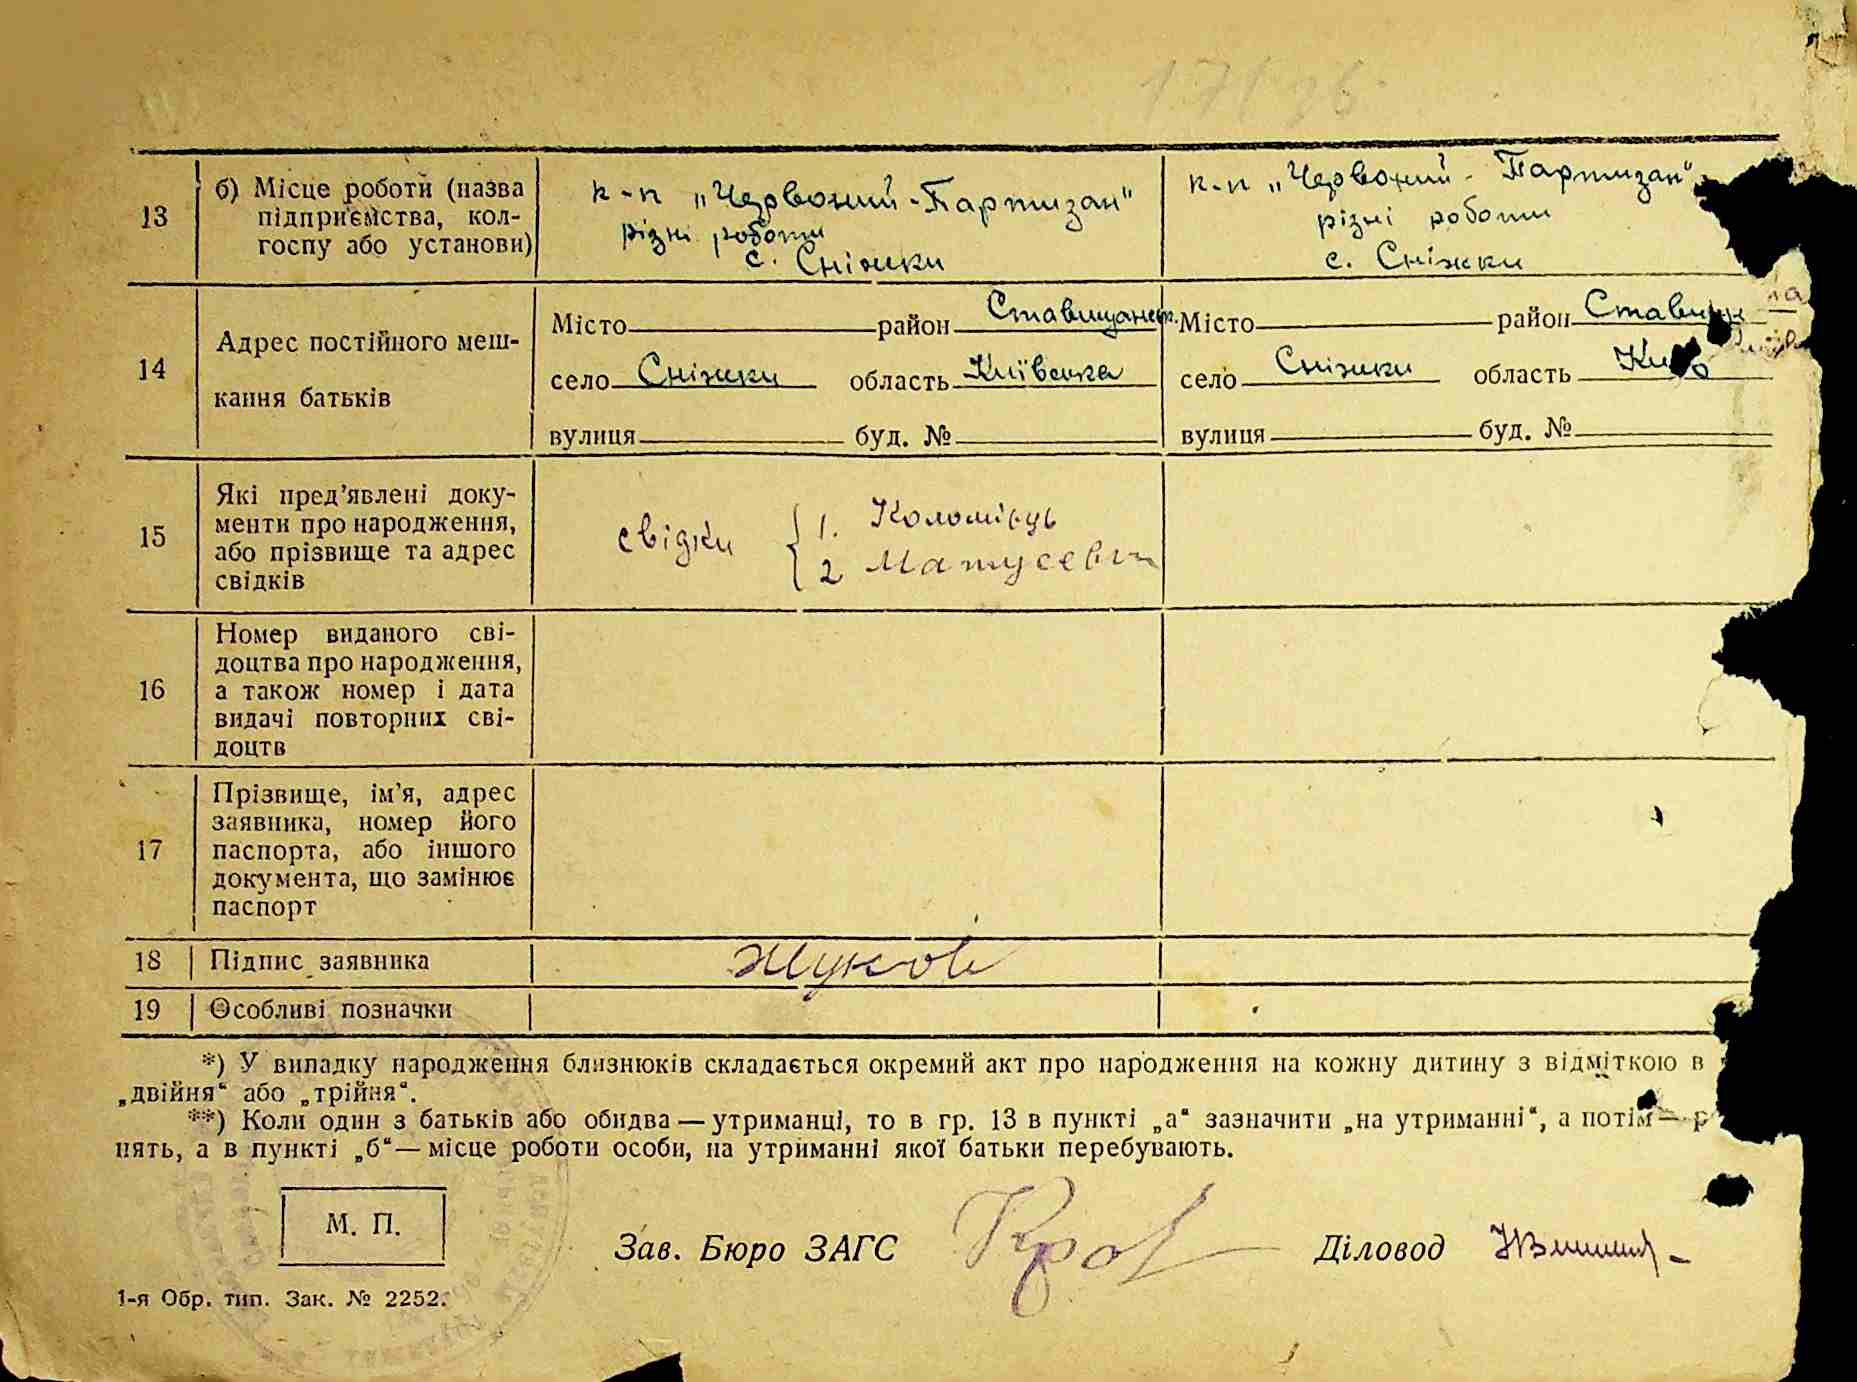 171
13 б) Місце роботи (назва підприємства, колгоспу або установи)
к-п „Червоний-Партизан“
різні роботи
с. Сніжки
к-п „Червоний-Партизан“
різні роботи
с. Сніжки
14 Адрес постійного мешкання батьків
Місто район Ставищанськ.
село Сніжки область Київська
вулиця буд. №
Місто район Ставищ
село Сніжки область
вулиця буд. №
15 Які пред’явлені документи про народження, або прізвище та адрес свідків
свідки { 1. Коломієць
2 Матусевич
16 Номер виданого свідоцтва про народження, а також номер і дата видачі повторних свідоцтв
17 Прізвище, ім’я, адрес заявника, номер його паспорта, або іншого документа, що замінює паспорт
18 Підпис заявника
19 Особливі позначки
*) У випадку народження близнюків складається окремий акт про народження на кожну дитину з відміткою в
„двійня“ або „трійня“.
**) Коли один з батьків або обидва — утриманці, то в гр. 13 в пункті „а“ зазначити „на утриманні“, а потім —
нять, а в пункті „б“ — місце роботи особи, на утриманні якої батьки перебувають.
М. П.
Зав. Бюро ЗАГС
Діловод
1-я Обр. тип. Зак. № 2252.